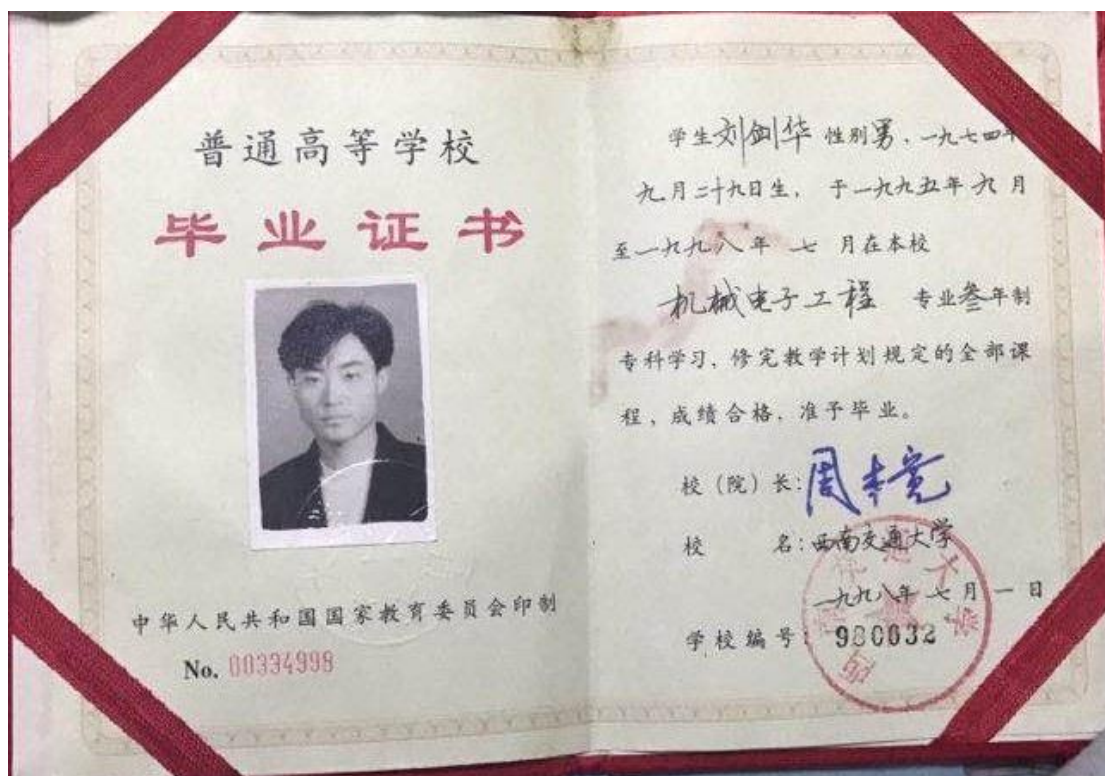 普通高等学校
毕业证书
中华人民共和国国家教育委员会印制
No. 00334998
学生刘剑华 性别男、一九七四年
九月二十九日生，于一九九五年九月
至一九九八年 七 月在本校
机械电子工程 专业叁年制
专科学习，修完教学计划规定的全部课
程，成绩合格，准予毕业。
校（院）长：周本宽
校 名：西南交通大学
一九九八年七月一日
学校编号：980032